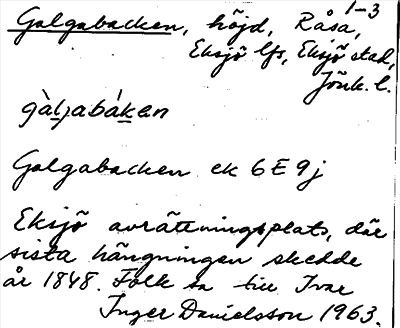 1-3
Galgabacken, höjd, Råsa,
Eksjö lfs, Eksjö stad,
Jönk. l.
gàl̥jabák̲en
Galgabacken ek 6E9j
Eksjö avrättningsplats, där
sista hängningen skedde
år 1848. Folk sa till Ivar
Inger Danielsson 1963.